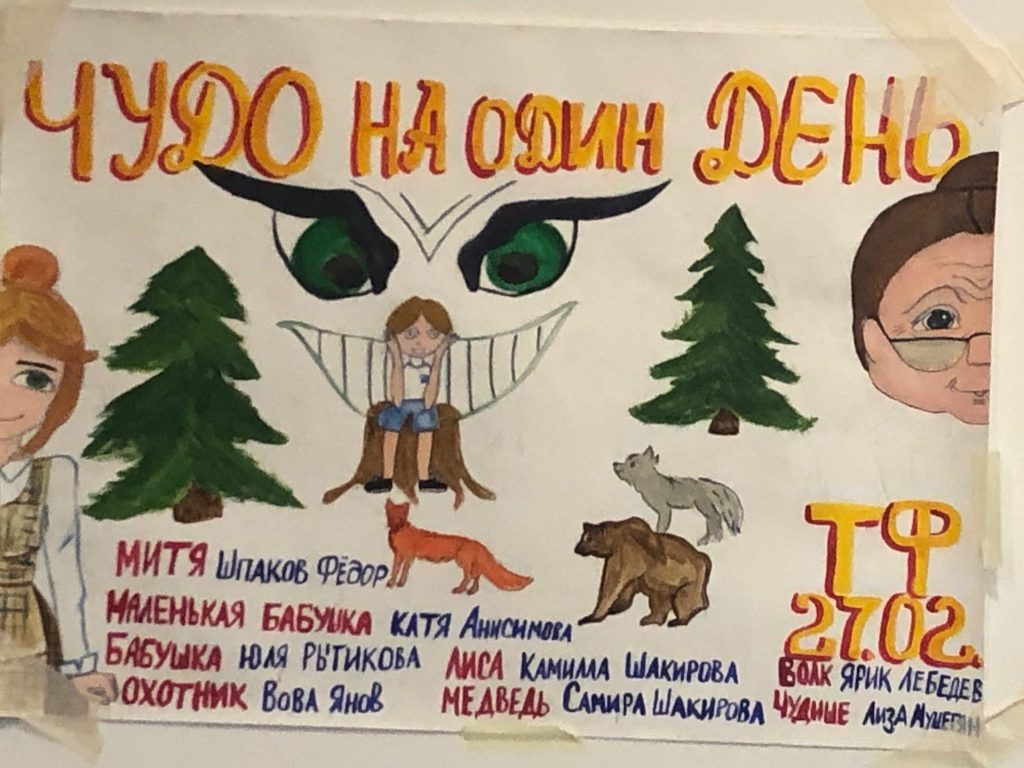 ЧУДО НА ОДИН ДЕНЬ
ТФ
27.02.
МИТЯ ШПАКОВ ФЁДОР
МАЛЕНЬКАЯ БАБУШКА КАТЯ АНИСИМОВА
БАБУШКА ЮЛЯ РЫТИКОВА
ОХОТНИК ВОВА ЯНОВ
ЛИСА КАМИЛА ШАКИРОВА
МЕДВЕДЬ САМИРА ШАКИРОВА
ВОЛК ЯРИК ЛЕБЕДЕВ
ЧУДИЩЕ ЛИЗА